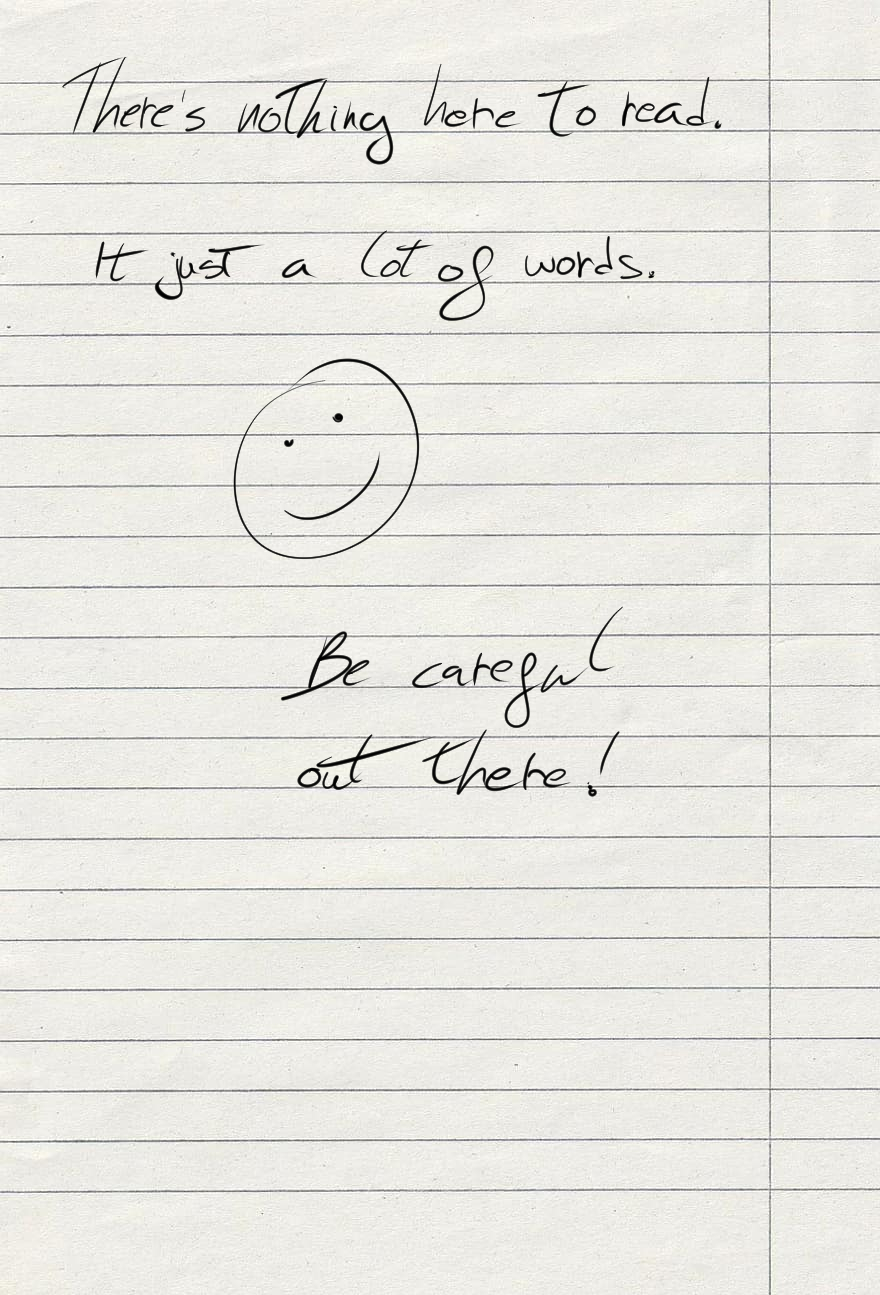 There's nothing here to read.
It just a lot of words.
Be careful
out there!